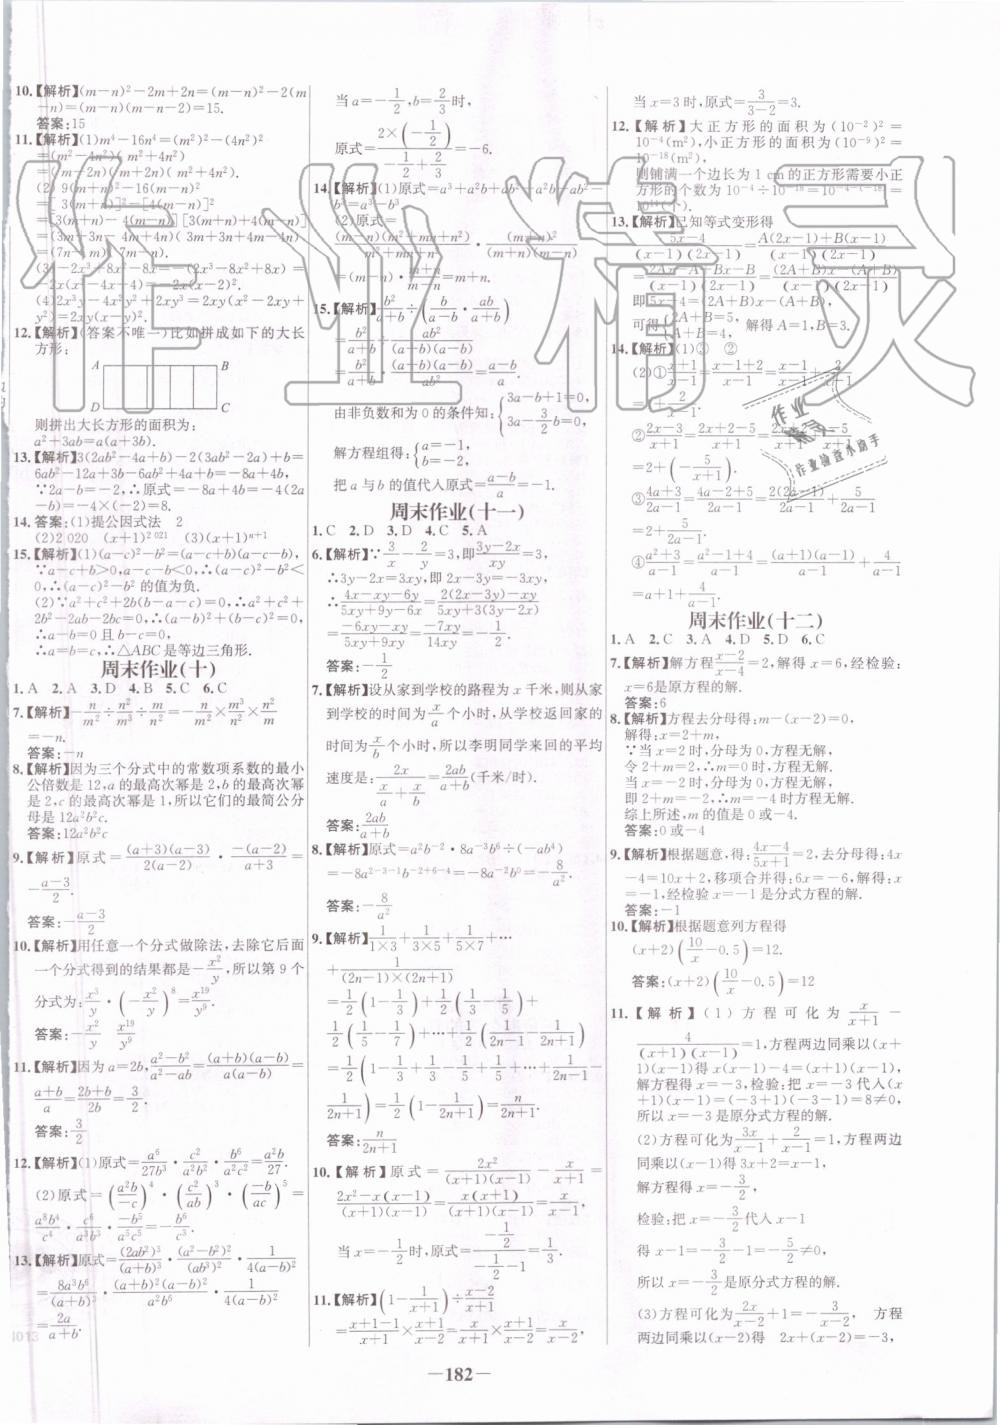 10.【解析】(m－n)²－2m＋2n＝(m－n)²－2(m
－n)＝(m－n)(m－n－2)＝15.
答案:15
11.【解析】(1)m⁴－16n⁴＝(m²)²－(4n²)²
＝(m²－4n²)(m²＋4n²)
＝(m＋2n)(m－2n)(m²＋4n²)
(2) 9(m＋n)²－16(m－n)²
＝[3(m＋n)]²－[4(m－n)]²
＝[3(m＋n)－4(m－n)][3(m＋n)＋4(m－n)]
＝(3m＋3n－4m＋4n)(3m＋3n＋4m－4n)
＝(7n－m)(7m－n)
(3)－2x³＋8x²－8x＝－(2x³－8x²＋8x)
＝－2x(x²－4x＋4)＝－2x(x－2)².
(4)2x³y－4x²y²＋2xy³＝2xy(x²－2xy＋
y²)＝2xy(x－y)².
12.【解析】(答案不唯一)比如拼成如下的大长
方形:
A B
D C
则拼出大长方形的面积为:
a²＋3ab＝a(a＋3b).
13.【解析】3(2ab²－4a＋b)－2(3ab²－2a)＋b＝
6ab²－12a＋3b－6ab²＋4a＋b＝－8a＋4b,
∵2a－b＝－2,∴原式＝－8a＋4b＝－4(2a
－b)＝－4×(－2)＝8.
14.答案:(1)提公因式法 2
(2)2 020 (x＋1)^{2 021} (3)(x＋1)^{n＋1}
15.【解析】(1)(a－c)²－b²＝(a－c＋b)(a－c－b),
∵a－c＋b>0,a－c－b<0,∴(a－c)²－b²<
0,∴(a－c)²－b² 的值为负.
(2)∵a²＋c²＋2b(b－a－c)＝0,∴a²＋c²＋
2b²－2ab－2bc＝0,∴(a－b)²＋(b－c)²＝0,
∴a－b＝0且b－c＝0,
∴a＝b＝c,∴△ABC是等边三角形.
周末作业(十)
1.A 2.A 3.D 4.B 5.C 6.C
7.【解析】－n/m²÷n²/m³÷m/n²＝－n/m²×m³/n²×n²/m
＝－n.
答案:－n
8.【解析】因为三个分式中的常数项系数的最小
公倍数是12,a的最高次幂是2,b的最高次幂
是2,c的最高次幂是1,所以它们的最简公分
母是12a²b²c.
答案:12a²b²c
9.【解析】原式＝(a＋3)(a－3)/2(a－2)·－(a－2)/a＋3＝
－a－3/2.
答案:－a－3/2
10.【解析】用任意一个分式做除法,去除它后面
一个分式得到的结果都是－x²/y,所以第9个
分式为:x³/y·(－x²/y)⁸＝x¹⁹/y⁹.
答案:－x²/y x¹⁹/y⁹
11.【解析】因为a＝2b,a²－b²/a²－ab＝(a＋b)(a－b)/a(a－b)＝
a＋b/a＝2b＋b/2b＝3/2.
答案:3/2
12.【解析】(1)原式＝a⁶/27b³·c²/a²b²·b⁶/a²c²＝a²b/27.
(2)原式＝(a²b/－c)⁴·(c²/ab)³·(－b/ac)⁵＝
a⁸b⁴/c⁴·c⁶/a³b³·－b⁵/a⁵c⁵＝－b⁶/c³.
13.【解析】原式＝(2ab²)³/(a＋b)³·(a²－b²)²/(ab³)²·1/4(a－b)²
＝8a³b⁶/(a＋b)³·(a＋b)²(a－b)²/a²b⁶·1/4(a－b)²
＝2a/a＋b.
当a＝－1/2,b＝2/3时,
原式＝2×(－1/2)/－1/2＋2/3＝－6.
14.【解析】(1)原式＝a³＋a²b＋ab²－a²b－ab²－
b³＝a³－b³.
(2)原式＝
(m－n)(m²＋mn＋n²)/m²＋mn＋n²·(m＋n)²/(m－n)²
＝(m－n)·m＋n/m－n＝m＋n.
15.【解析】b²/a＋b÷(b/a－b·ab/a＋b)
＝b²/a＋b÷ab²/(a＋b)(a－b)
＝b²/a＋b·(a＋b)(a－b)/ab²＝a－b/a,
由非负数和为0的条件知:{3a－b＋1＝0, 3a－3/2b＝0,
解方程组得:{a＝－1, b＝－2.
把a与b的值代入原式＝a－b/a＝－1.
周末作业(十一)
1.C 2.D 3.D 4.C 5.A
6.【解析】∵3/x－2/y＝3,即3y－2x/xy＝3,
∴3y－2x＝3xy,即2x－3y＝－3xy,
∴4x－xy－6y/5xy＋9y－6x＝2(2x－3y)－xy/5xy＋3(3y－2x)＝
－6xy－xy/5xy＋9xy＝－7xy/14xy＝－1/2.
答案:－1/2
7.【解析】设从家到学校的路程为x千米,则从家
到学校的时间为x/a个小时,从学校返回家的
时间为x/b个小时,所以李明同学来回的平均
速度是:2x/x/a＋x/b＝2ab/a＋b(千米/时).
答案:2ab/a＋b
8.【解析】原式＝a²b⁻²·8a⁻³b⁶÷(－ab⁴)
＝－8a^{2－3－1}b^{－2＋6－4}＝－8a⁻²b⁰＝－8/a².
答案:－8/a²
9.【解析】1/1×3＋1/3×5＋1/5×7＋…
＋1/(2n－1)×(2n＋1)
＝1/2(1－1/3)＋1/2(1/3－1/5)＋
1/2(1/5－1/7)＋…＋1/2(1/2n－1－1/2n＋1)
＝1/2(1－1/3＋1/3－1/5＋…＋1/2n－1－
1/2n＋1)＝1/2(1－1/2n＋1)＝n/2n＋1.
答案:n/2n＋1
10.【解析】原式＝2x²/(x＋1)(x－1)－x/x＋1＝
2x²－x(x－1)/(x＋1)(x－1)＝x(x＋1)/(x＋1)(x－1)＝x/x－1,
当x＝－1/2时,原式＝－1/2/－1/2－1＝1/3.
11.【解析】(1－1/x＋1)÷x－2/x＋1
＝x＋1－1/x＋1×x＋1/x－2＝x/x＋1×x＋1/x－2＝x/x－2,
当x＝3时,原式＝3/3－2＝3.
12.【解析】大正方形的面积为(10⁻²)²＝
10⁻⁴(m²),小正方形的面积为(10⁻⁹)²＝
10⁻¹⁸(m²),
则铺满一个边长为1 cm的正方形需要小正
方形的个数为10⁻⁴÷10⁻¹⁸＝10^{－4－(－18)}＝
10¹⁴(个).
13.【解析】已知等式变形得
5x－4/(x－1)(2x－1)＝A(2x－1)＋B(x－1)/(x－1)(2x－1)
＝2Ax－A＋Bx－B/(x－1)(2x－1)＝(2A＋B)x－(A＋B)/(x－1)(2x－1),
即5x－4＝(2A＋B)x－(A＋B),
可得{2A＋B＝5, A＋B＝4, 解得A＝1,B＝3.
14.【解析】(1)③ ②
(2)①x＋1/x－1＝x－1＋2/x－1＝x－1/x－1＋2/x－1
＝1＋2/x－1
②2x－3/x＋1＝2x＋2－5/x＋1＝2x＋2/x＋1－5/x＋1
＝2＋(－5/x＋1)
③4a＋3/2a－1＝4a－2＋5/2a－1＝2(2a－1)/2a－1＋5/2a－1
＝2＋5/2a－1.
④a²＋3/a－1＝a²－1＋4/a－1＝(a＋1)(a－1)/a－1＋4/a－1
＝a＋1＋4/a－1.
周末作业(十二)
1.A 2.C 3.A 4.D 5.D 6.C
7.【解析】解方程x－2/x－4＝2,解得x＝6,经检验:
x＝6是原方程的解.
答案:6
8.【解析】方程去分母得:m－(x－2)＝0,
解得:x＝2＋m,
∵当x＝2时,分母为0,方程无解,
令2＋m＝2,∴m＝0时方程无解.
当x＝－2时,分母为0,方程无解,
即2＋m＝－2,∴m＝－4时方程无解.
综上所述,m的值是0或－4.
答案:0或－4
9.【解析】根据题意,得:4x－4/5x＋1＝2,去分母得:4x
－4＝10x＋2,移项合并得:6x＝－6,解得:x
＝－1,经检验x＝－1是分式方程的解.
答案:－1
10.【解析】根据题意列方程得
(x＋2)(10/x－0.5)＝12.
答案:(x＋2)(10/x－0.5)＝12
11.【解析】(1)方程可化为x/x＋1－
4/(x＋1)(x－1)＝1,方程两边同乘以(x＋
1)(x－1)得x(x－1)－4＝(x＋1)(x－1),
解方程得x＝－3,检验:把x＝－3代入(x
＋1)(x－1)＝(－3＋1)(－3－1)＝8≠0,
所以x＝－3是原分式方程的解.
(2)方程可化为3x/x－1＋2/x－1＝1,方程两边
同乘以(x－1)得3x＋2＝x－1,
解方程得x＝－3/2,
检验:把x＝－3/2代入x－1
得x－1＝－3/2－1＝－5/2≠0,
所以x＝－3/2是原分式方程的解.
(3)方程可化为2x/x－2＋1＝－3/x－2, 方程
两边同乘以(x－2)得 2x＋(x－2)＝－3,
—182—
作业精灵
作业
精灵
作业检查小助手